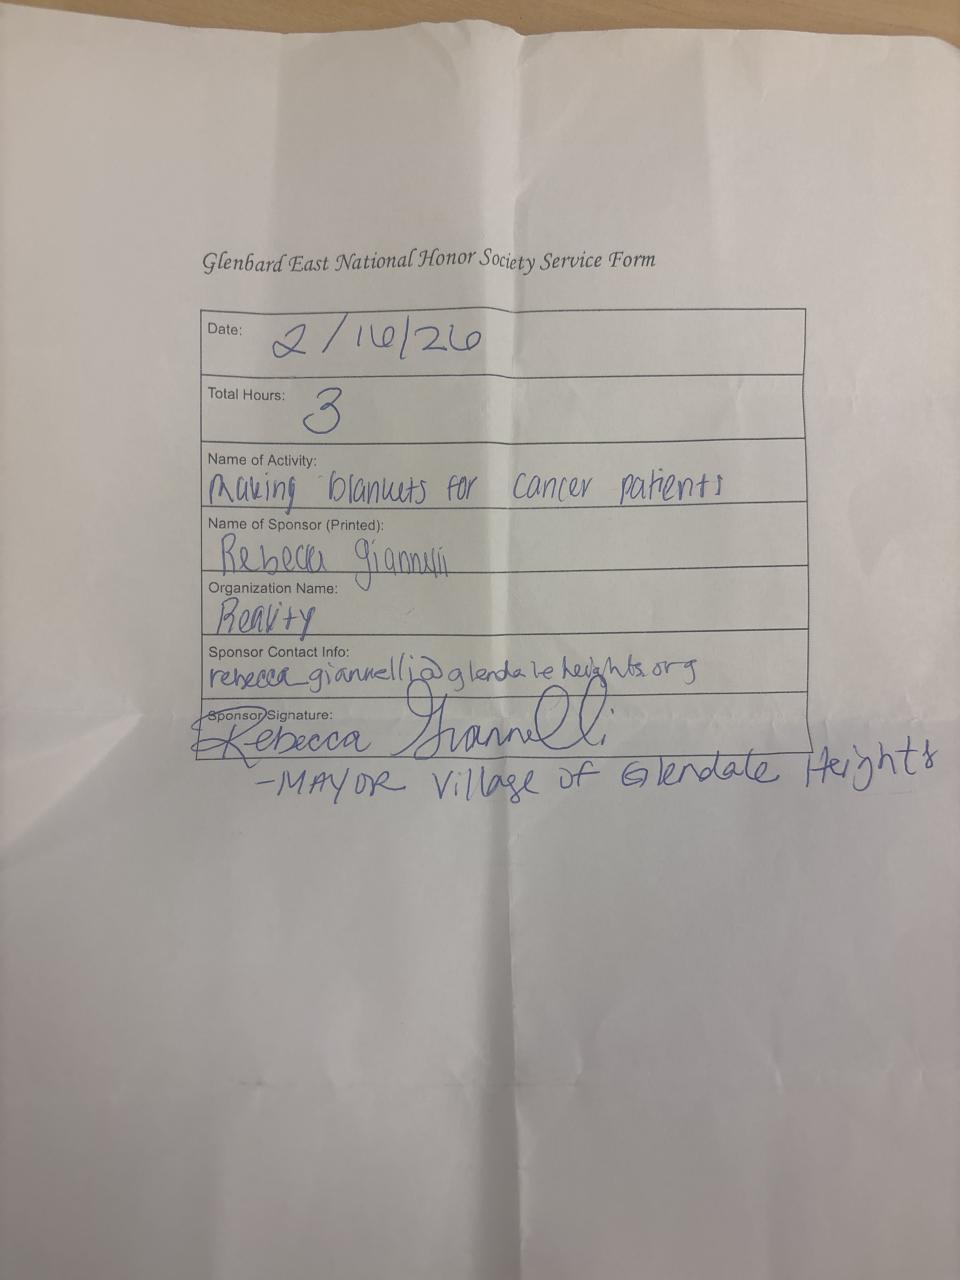 Glenbard East National Honor Society Service Form
Date: 2/16/26
Total Hours: 3
Name of Activity:
Making blankets for cancer patients
Name of Sponsor (Printed):
Rebecca Giannelli
Organization Name:
Reality
Sponsor Contact Info:
rebecca_giannelli@glendaleheights.org
Sponsor Signature:
Rebecca Giannelli
-MAYOR Village of Glendale Heights